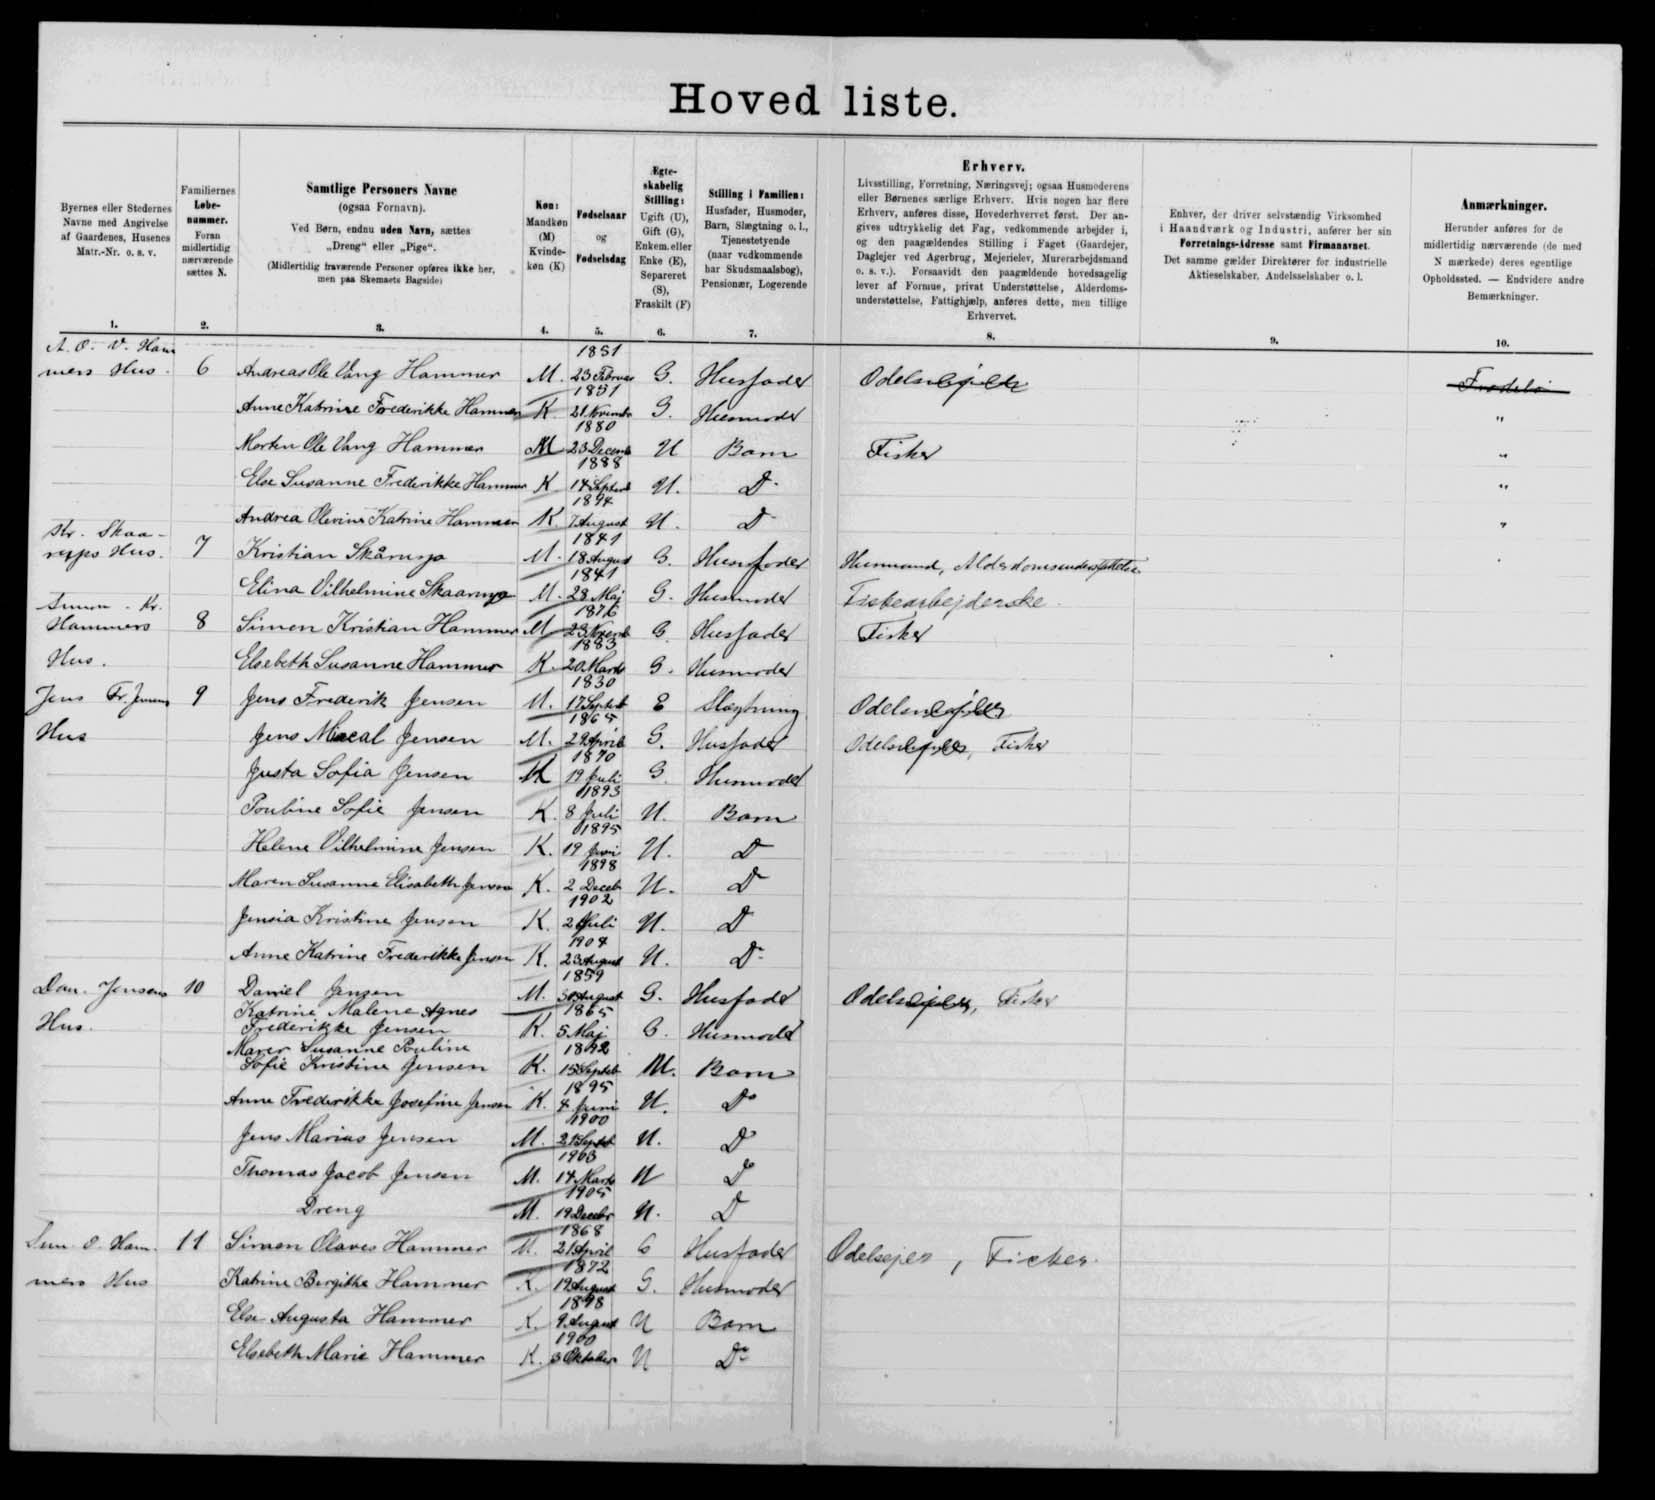 Hoved liste.
Byernes eller Stedernes
Navne med Angivelse
af Gaardenes, Husenes
Matr.-Nr. o. s. v.
Familiernes
Løbe-
nummer.
Foran
midlertidig
nærværende
sættes N.
Samtlige Personers Navne
(ogsaa Fornavn).
Ved Børn, endnu uden Navn, sættes
„Dreng“ eller „Pige“.
(Midlertidig fraværende Personer opføres ikke her,
men paa Skemaets Bagside)
Køn:
Mandkøn
(M)
Kvinde-
køn (K)
Fødselsaar
og
Fødselsdag
Ægte-
skabelig
Stilling:
Ugift (U),
Gift (G),
Enkem. eller
Enke (E),
Separeret
(S),
Fraskilt (F)
Stilling i Familien:
Husfader, Husmoder,
Barn, Slægtning o. l.,
Tjenestetyende
(naar vedkommende
har Skudsmaalsbog),
Pensionær, Logerende
Erhverv.
Livsstilling, Forretning, Næringsvej; ogsaa Husmoderens
eller Børnenes særlige Erhverv. Hvis nogen har flere
Erhverv, anføres disse, Hovederhvervet først. Der an-
gives udtrykkelig det Fag, vedkommende arbejder i,
og den paagældendes Stilling i Faget (Gaardejer,
Daglejer ved Agerbrug, Mejerielev, Murerarbejdsmand
o. s. v.). Forsaavidt den paagældende hovedsagelig
lever af Formue, privat Understøttelse, Alderdoms-
understøttelse, Fattighjælp, anføres dette, men tillige
Erhvervet.
Enhver, der driver selvstændig Virksomhed
i Haandværk og Industri, anfører her sin
Forretnings-Adresse samt Firmanavnet.
Det samme gælder Direktører for industrielle
Aktieselskaber, Andelsselskaber o. l.
Anmærkninger.
Herunder anføres for de
midlertidig nærværende (de med
N mærkede) deres egentlige
Opholdssted. — Endvidere andre
Bemærkninger.
1. 2. 3. 4. 5. 6. 7. 8. 9. 10.
A. O. V. Ham 1851
mers Hus. 6 Andreas Ole Vang Hammer M. 23 Februar G. Husfader
1851
Anne Katrine Frederikke Hammer K. 21. Novembr G. Husmoder "
1880
Morten Ole Vang Hammer M 23 Decemb U Barn Fisker "
1888
Else Susanne Frederikke Hammer K 14 Septemb U. D "
1894
Andrea Olevine Katrine Hammer K. 7 August U. D "
Kr. Skaa- 1841
rups Hus. 7 Kristian Skårup M. 18 August G. Husfader Husmand, Alderdomsunderstøttelse
1841
Elina Vilhelmine Skaarup M. 28 Maj G. Husmoder
Simon Kr. 1876
Hammers 8 Simon Kristian Hammer M 23 Novemb G. Husfader Fisker
1883
Hus. Elsebeth Susanne Hammer K. 20 Marts G. Husmoder
1830
Jens Fr. Jensens 9 Jens Frederik Jensen M. 17 Septemb E Slægtning Odelsejer
1865
Hus Jens Jensen M. 29 April G. Husfader Odelsejer, Fisker
1870
Justa Sofia Jensen 19 Juli G. Husmoder
1893
Pouline Sofie Jensen K. 8 Juli U. Barn
1895
Helene Vilhelmine Jensen K. 19 Juni U. D
1898
Maren Susanne Elisabeth Jensen K. 2 Deceb U. D
1902
Jensia Kristine Jensen K. Juli U. D
1904
Anne Katrine Frederikke Jensen K. 23 August U. D
1859
Dan. Jensens 10 Daniel Jensen M. 30 August G. Husfader Odelsejer, Fisker
Katrine Malene Agnes 1865
Hus. Frederikke Jensen K. 5 Maj G. Husmoder
Maren Susanne Pouline 1892
Sofie Kristine Jensen K. 15 Septeb U. Barn
1895
Anne Frederikke Josefine Jensen K. 4 Juni U. Do
1900
Jens Marius Jensen M. 21 Septeb U. D
1903
Thomas Jacob Jensen M. 14 Marts U Do
1905
Dreng M. 19 Decebr U. D
1868
Sim. O. Ham. 11 Simon Olaves Hammer M. 21 April G Husfader Odelsejer, Fisker.
1872
mers Hus Katrine Bergithe Hammer K. 19 August G. Husmoder
1898
Else Augusta Hammer K. 9 August U Barn
1900
Elsebeth Marie Hammer K. 3 Oktober U Do